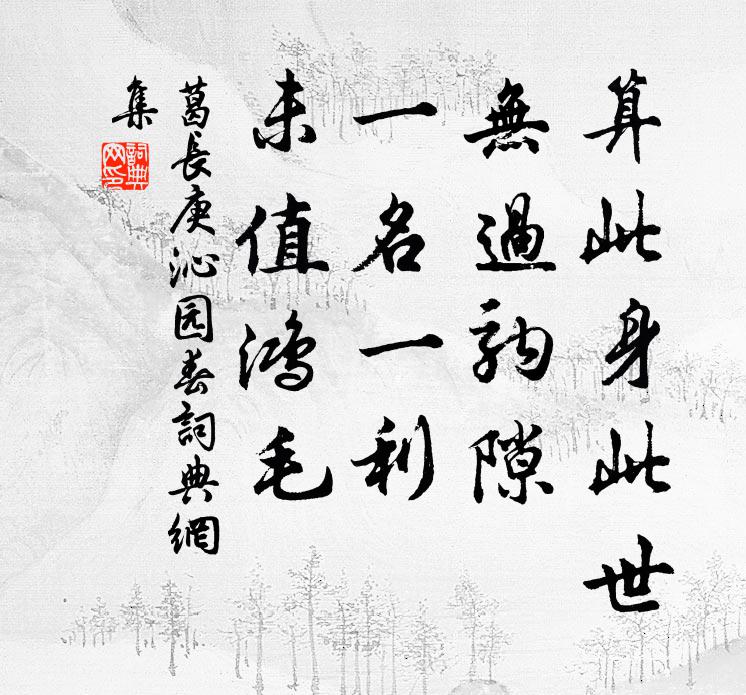 算此身此世
無過駒隙
一名一利
未值鴻毛
葛長庚沁园春詞典網
集
詞典网印